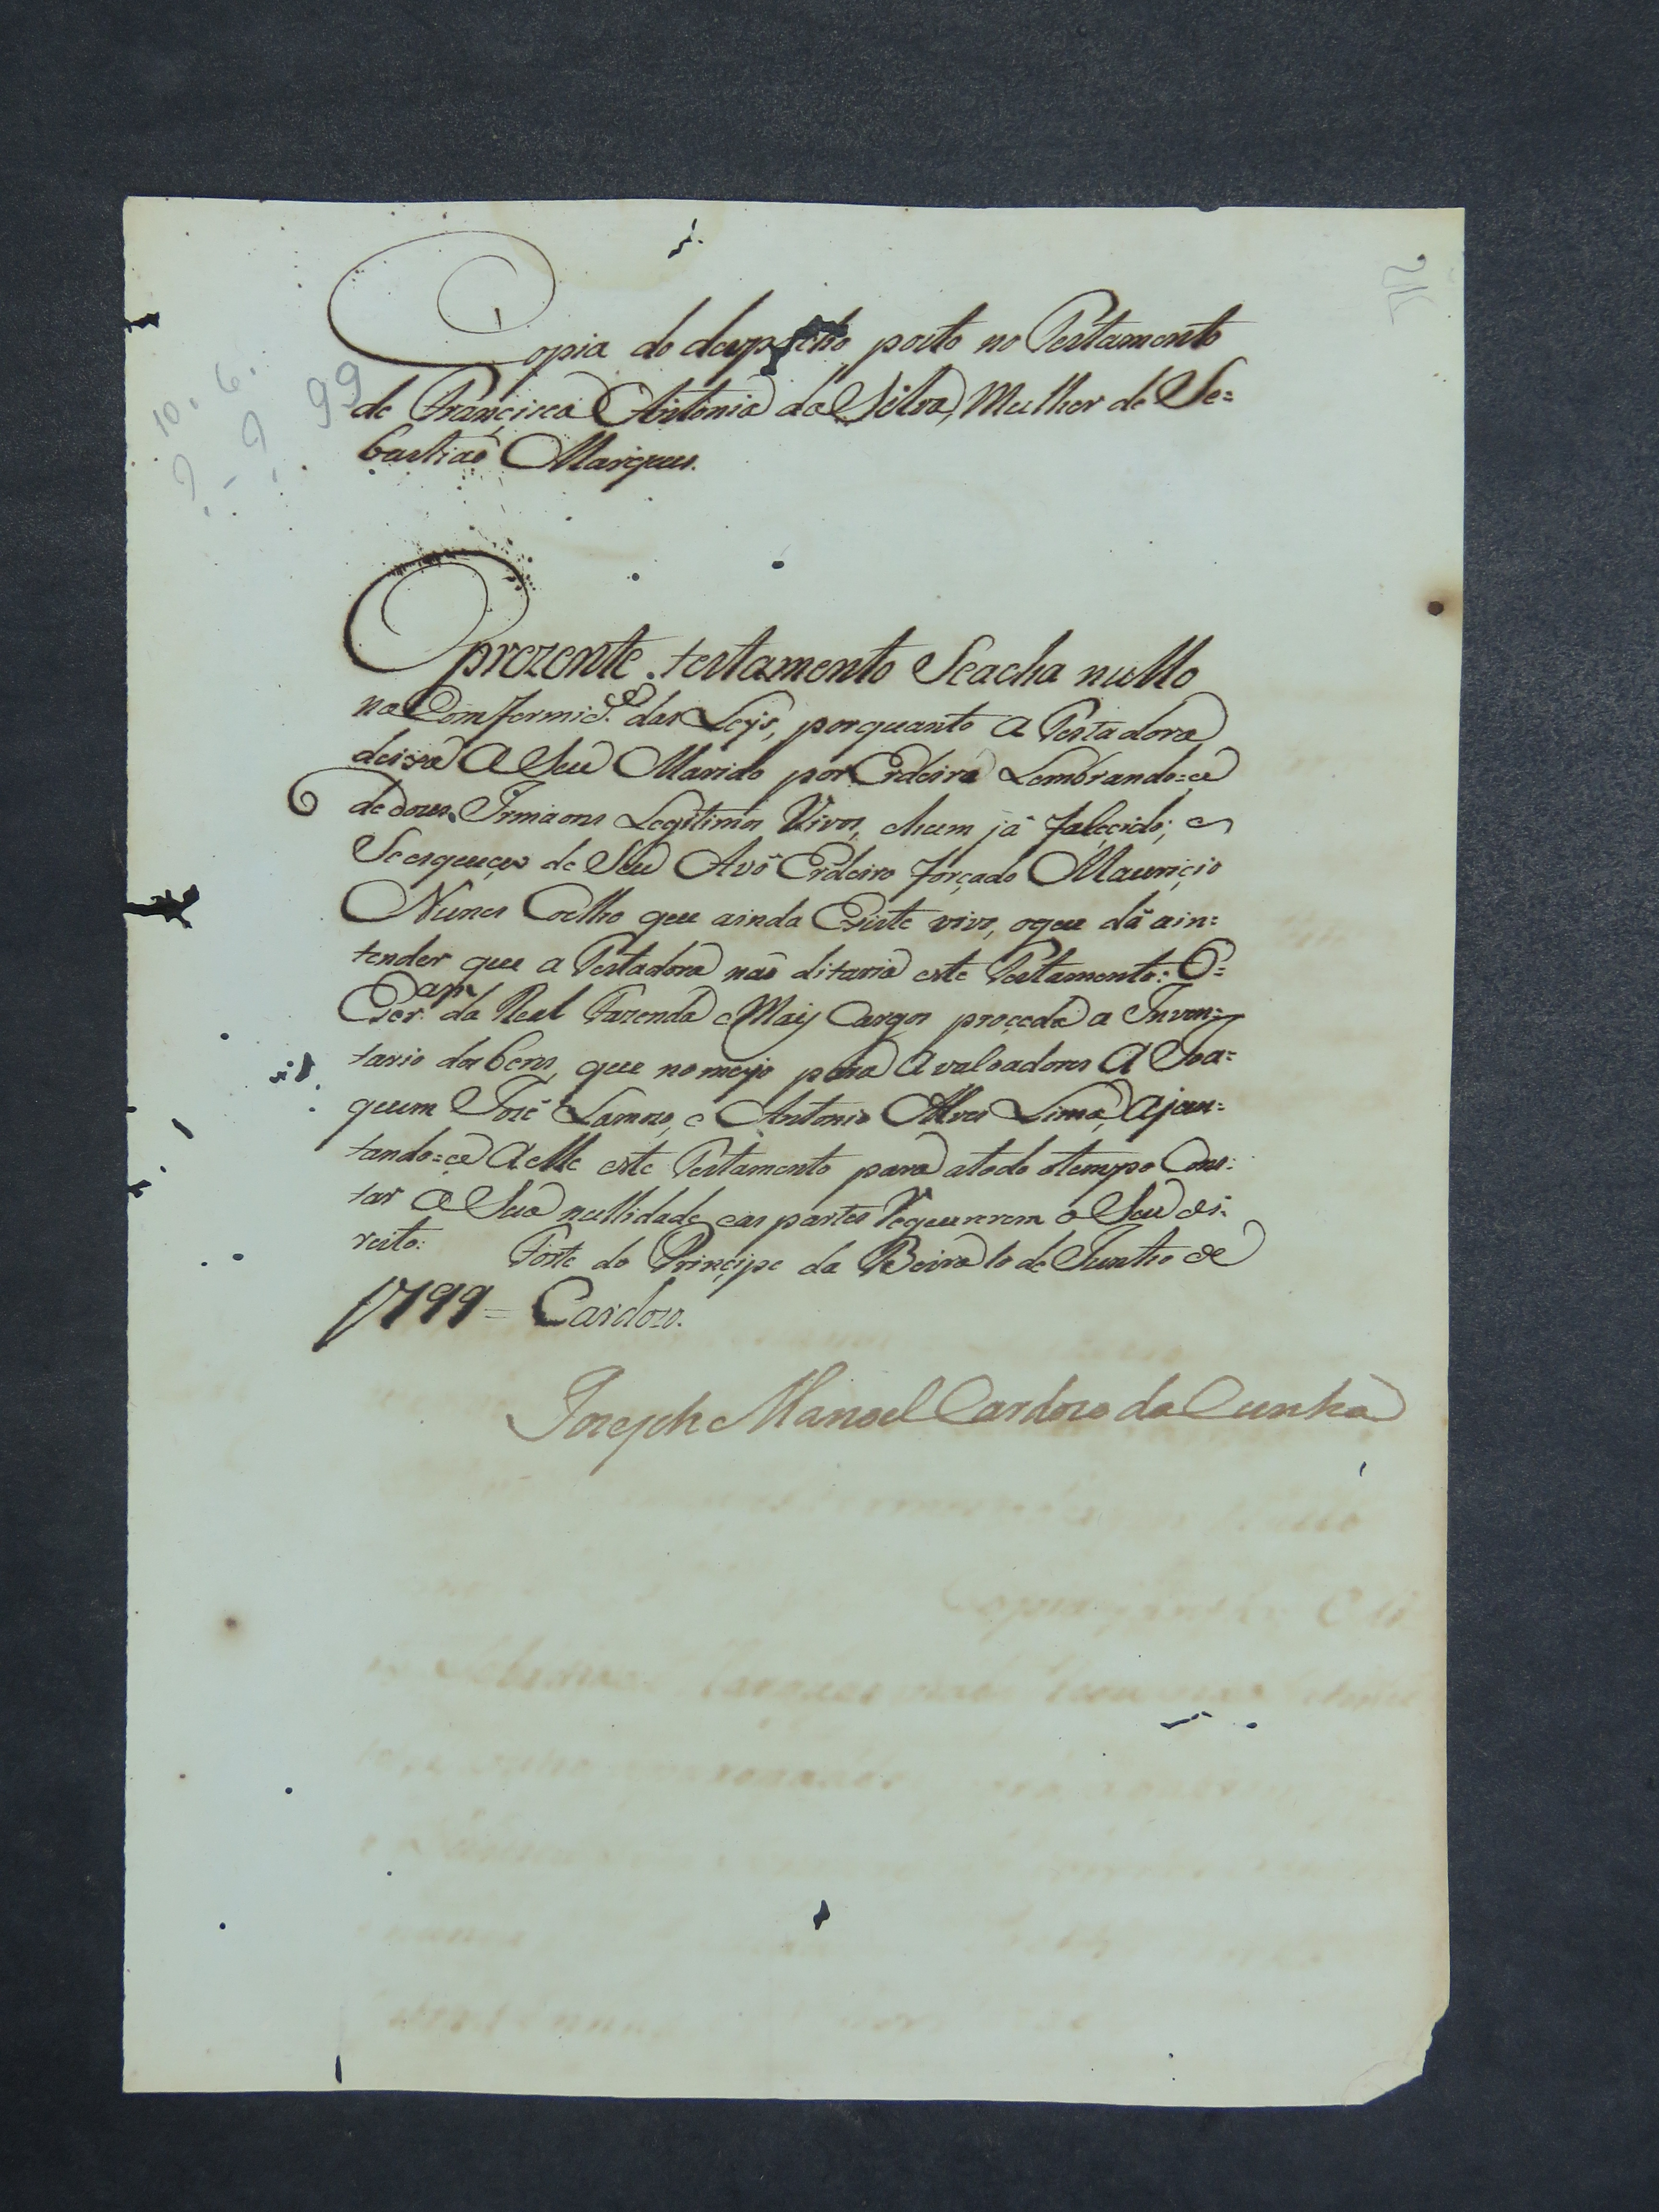 Copia do despacho posto no Testamento
de Françisca Antonia da Silva, Mulher de Se=
bastiaõ Marques.
99
10. 6.
O prezente testamento Seacha nullo
na Comformid.e das Leys, porquanto a Testadora
deixa a Seu Marido por Erdeiro Lembrando=ce
de dous Irmaons Legitimos Vivos, ehum já faleçido; e
Seesqueçeo de Seu Avô Erdeiro forçado Mauriçio
Nunes Coelho que ainda Existe vivo, oque dá ain=
tender que a Testadora naõ ditaria este Testamento: O=
Escr.am da Real Fazenda e Mais Cargos proçeda a Inven=
tario dos bens, que nomeyo para Avaleadores a Joa=
quim José Lamas, e Antonio Alves Lima, ajun=
tando=ce aelle este Testamento para atodo otempo Cons=
tar a Sua nullidade, eas partes Requererem o Seu di=
reito: Forte do Prinçipe da Beira 10 de Junho de
1799 = Cardozo.
Joseph Manoel Cardozo da Cunha